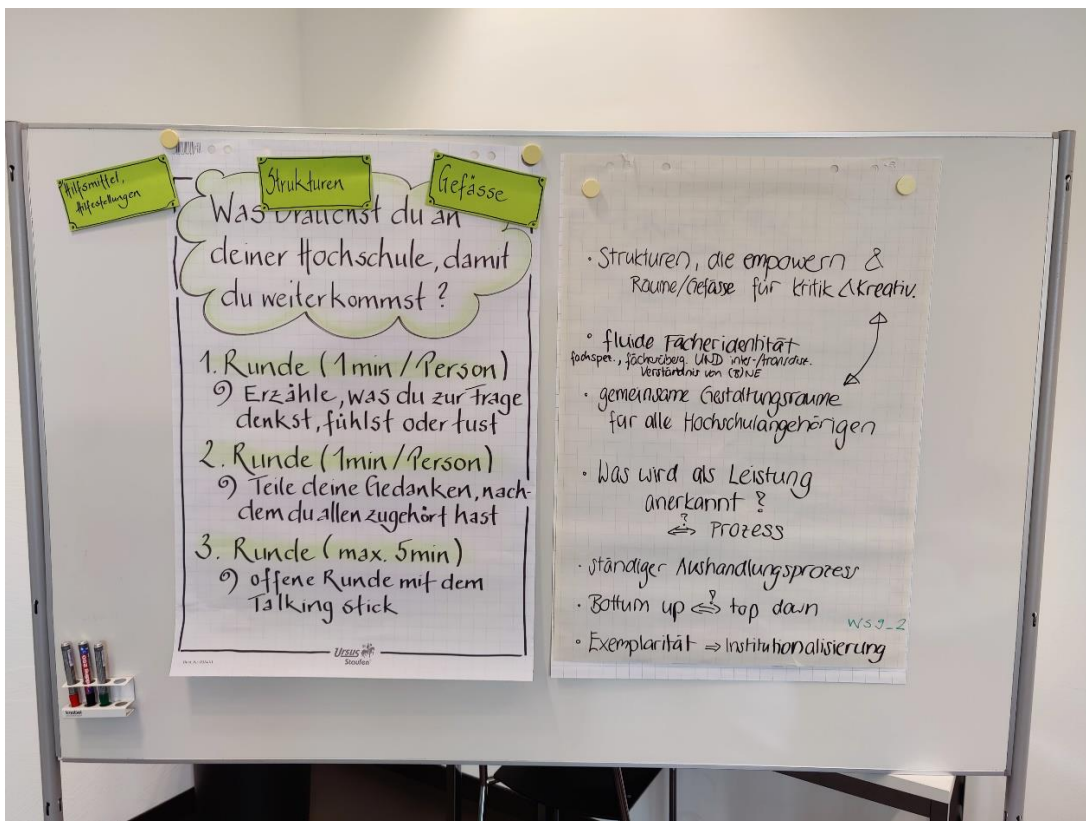 Hilfsmittel,
Hilfestellungen
Strukturen
Gefässe
Was brauchst du an
deiner Hochschule, damit
du weiterkommst?
1. Runde (1min/Person)
Erzähle, was du zur Frage
denkst, fühlst oder tust
2. Runde (1min/Person)
Teile deine Gedanken, nach-
dem du allen zugehört hast
3. Runde (max. 5min)
offene Runde mit dem
Talking stick
Ursus
Staufen
· Strukturen, die empowern &
Räume/Gefässe für Kritik & Kreativ.
· fluide Fächeridentität
fachspez., fächerüberg. UND inter-/transdisz.
Verständnis von (B)NE
· gemeinsame Gestaltungsräume
für alle Hochschulangehörigen
· Was wird als Leistung
anerkannt?
?
⇔ Prozess
· ständiger Aushandlungsprozess
?
· Bottum up ⇔ top down
WS9_2
· Exemplarität ⇒ Institutionalisierung